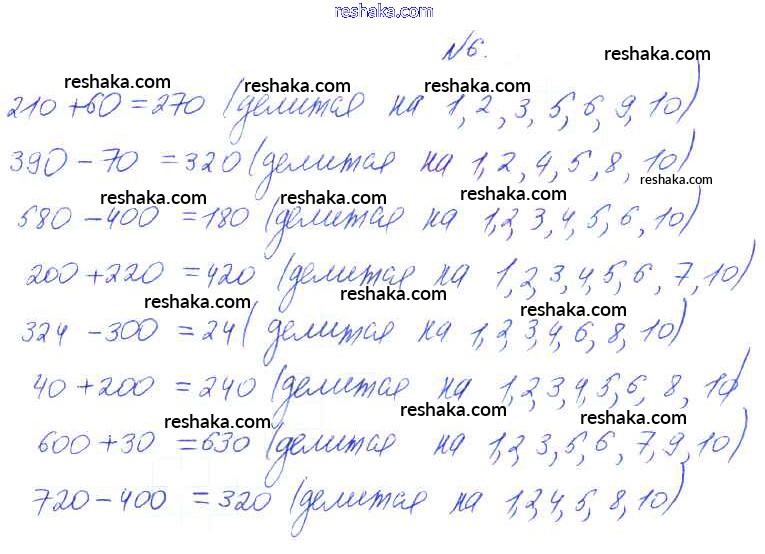 reshaka.com
№6.
reshaka.com
reshaka.com reshaka.com reshaka.com
210 + 60 = 270 (делится на 1, 2, 3, 5, 6, 9, 10)
390 - 70 = 320 (делится на 1, 2, 4, 5, 8, 10)
reshaka.com
reshaka.com reshaka.com reshaka.com
580 - 400 = 180 (делится на 1, 2, 3, 4, 5, 6, 10)
200 + 220 = 420 (делится на 1, 2, 3, 4, 5, 6, 7, 10)
reshaka.com reshaka.com reshaka.com
324 - 300 = 24 (делится на 1, 2, 3, 4, 6, 8, 10)
40 + 200 = 240 (делится на 1, 2, 3, 4, 5, 6, 8, 10)
reshaka.com reshaka.com reshaka.com
600 + 30 = 630 (делится на 1, 2, 3, 5, 6, 7, 9, 10)
720 - 400 = 320 (делится на 1, 2, 4, 5, 8, 10)